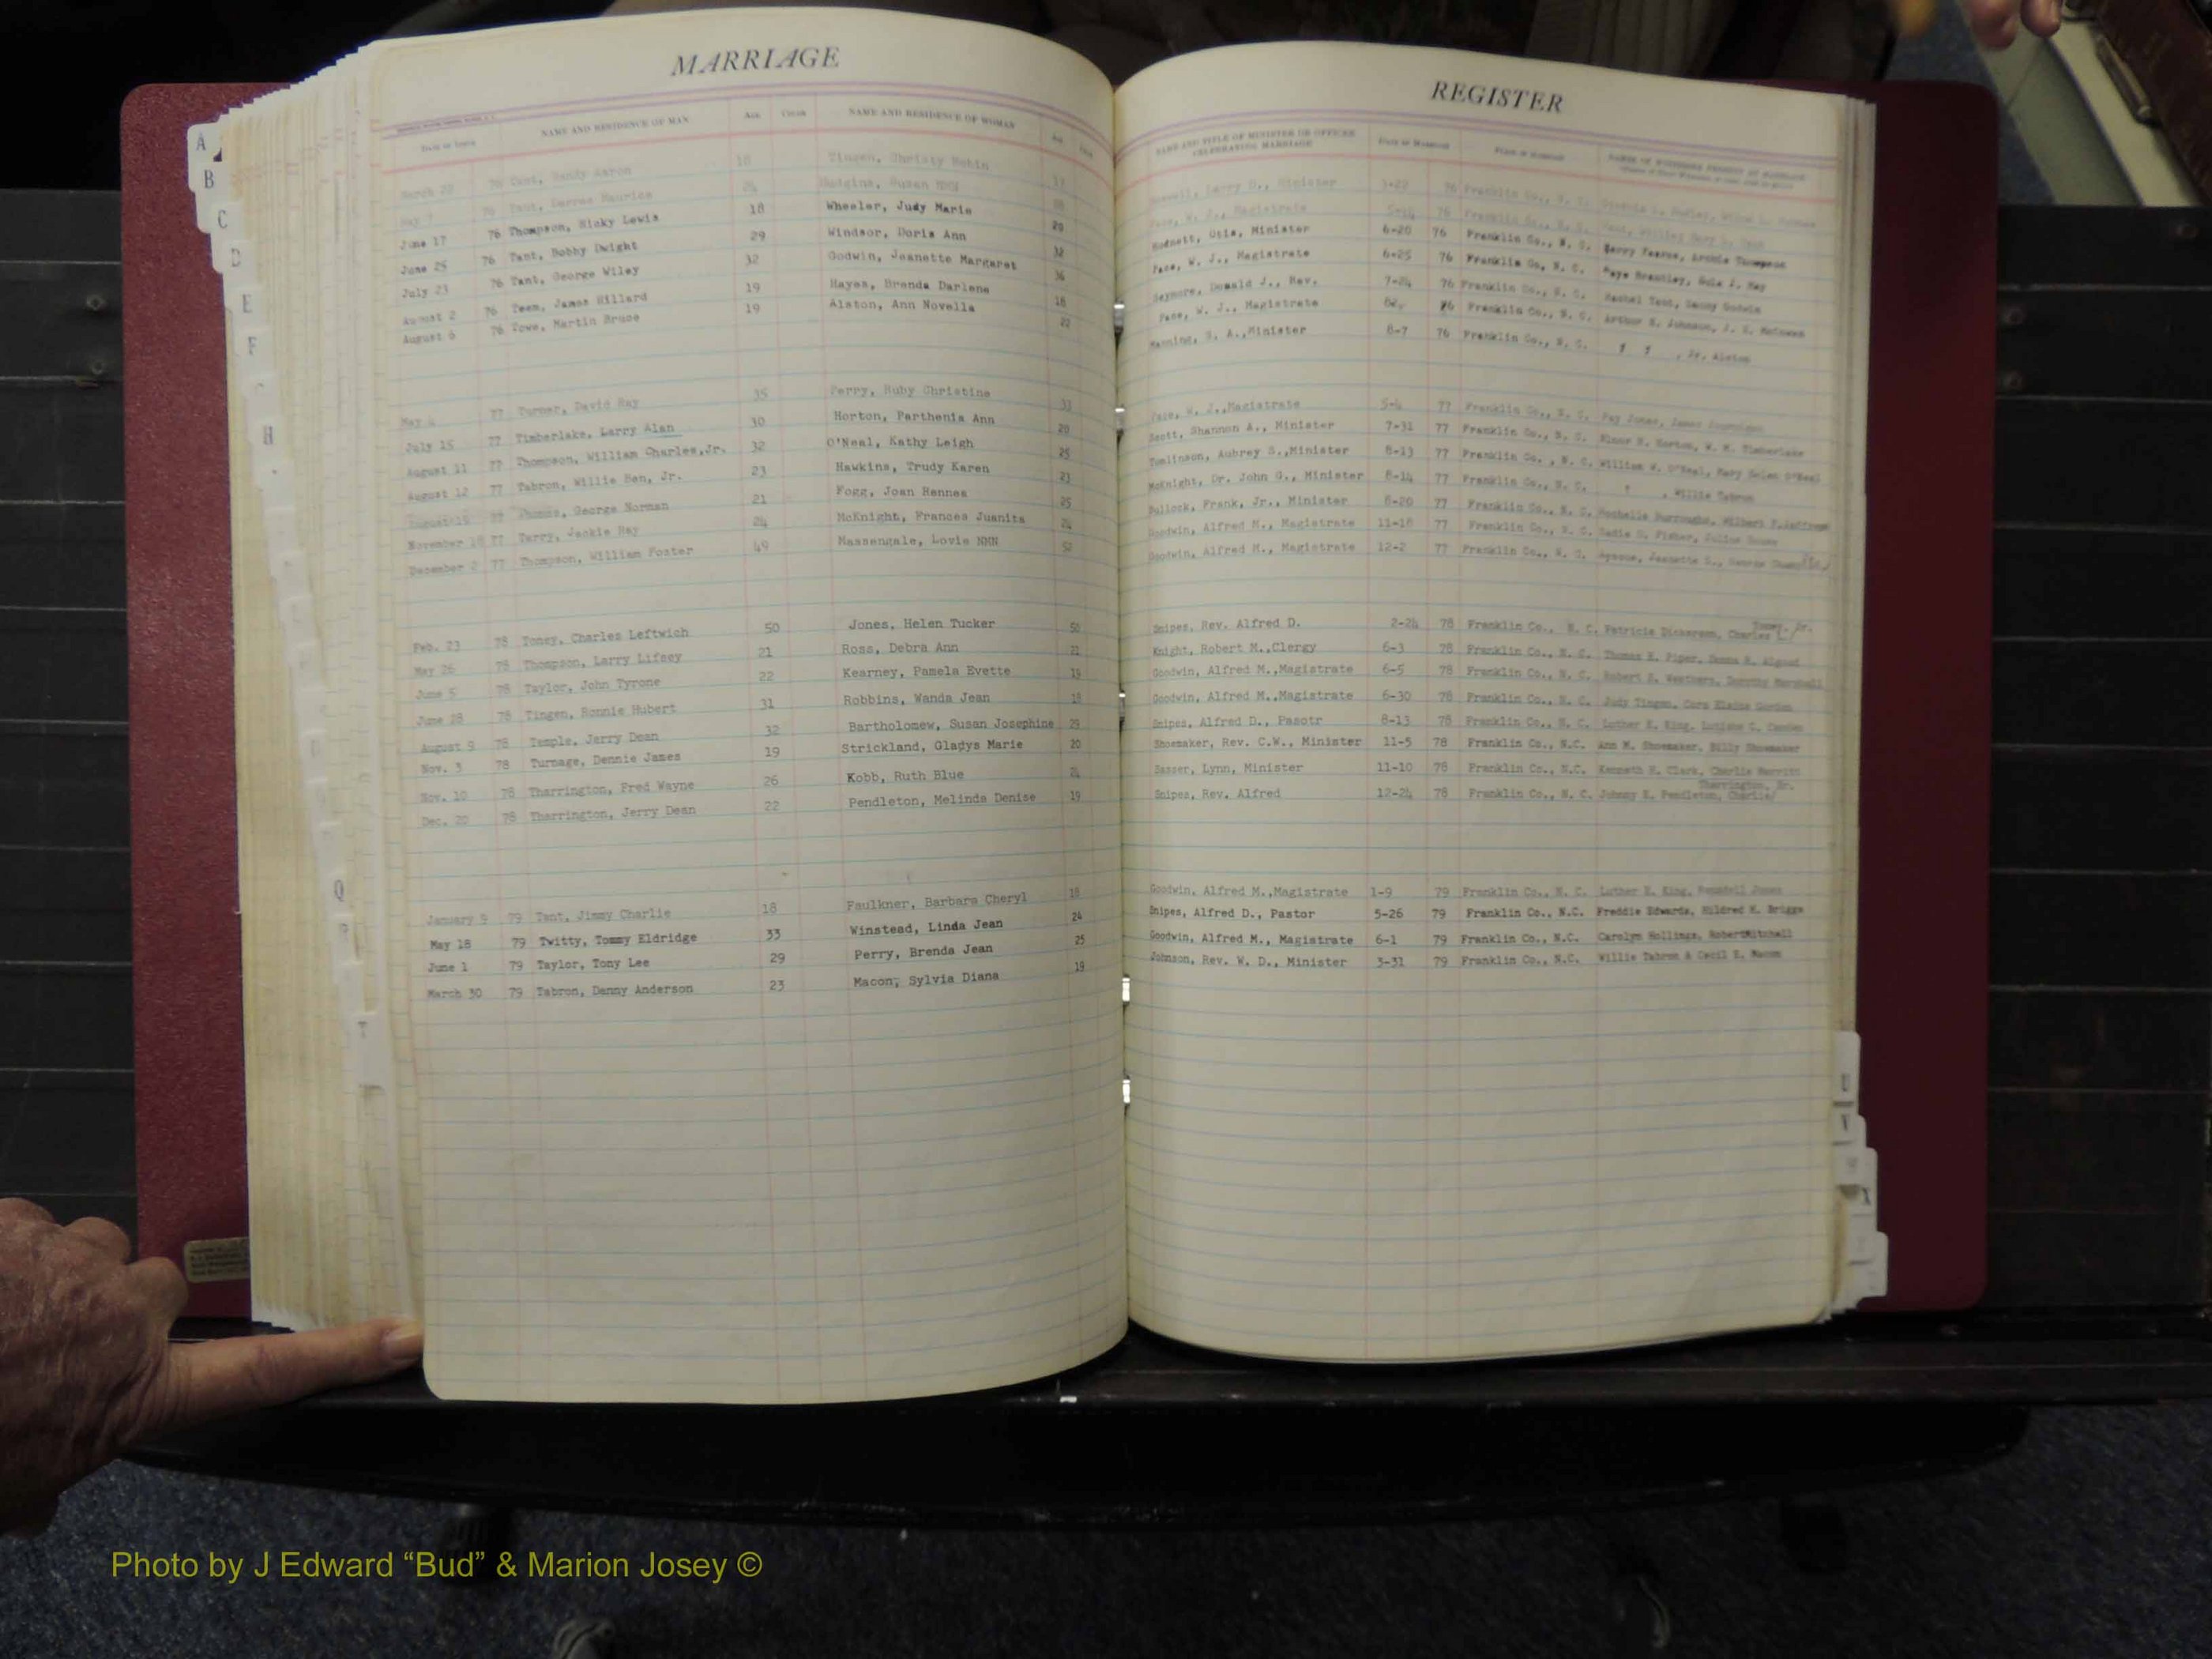 MARRIAGE
NAME AND RESIDENCE OF MAN Age Color NAME AND RESIDENCE OF WOMAN
March 76 Tant, Randy Aaron 18 Tingen, Christy Robin
May 76 Tant, Maurice 24 Hudgins, Susan NMN
June 17 76 Thompson, Ricky Lewis 18 Wheeler, Judy Marie 20
June 25 76 Tant, Bobby Dwight 29 Windsor, Doris Ann 32
July 23 76 Tant, George Wiley 32 Godwin, Jeanette Margaret 36
August 2 76 Teem, James Hillard 19 Hayes, Brenda Darlene 18
August 6 76 Towe, Martin Bruce 19 Alston, Ann Novella 22
May 77 Turner, David Ray 35 Perry, Ruby Christine 33
July 15 77 Timberlake, Larry Alan 30 Horton, Parthenia Ann 20
August 11 77 Thompson, William Charles,Jr. 32 O'Neal, Kathy Leigh 25
August 12 77 Tabron, Willie Ben, Jr. 23 Hawkins, Trudy Karen 23
August 77 Thomas, George Norman 21 Fogg, Joan Rennea 25
November 18 77 Terry, Jackie Ray 24 McKnight, Frances Juanita 24
December 2 77 Thompson, William Foster 49 Massengale, Lovie NMN 52
Feb. 23 78 Toney, Charles Leftwich 50 Jones, Helen Tucker 50
May 26 78 Thompson, Larry Lifsey 21 Ross, Debra Ann 21
June 5 78 Taylor, John Tyrone 22 Kearney, Pamela Evette 19
June 28 78 Tingen, Ronnie Hubert 31 Robbins, Wanda Jean 18
August 9 78 Temple, Jerry Dean 32 Bartholomew, Susan Josephine 29
Nov. 3 78 Turnage, Dennie James 19 Strickland, Gladys Marie 20
Nov. 10 78 Tharrington, Fred Wayne 26 Kobb, Ruth Blue 24
Dec. 20 78 Tharrington, Jerry Dean 22 Pendleton, Melinda Denise 19
January 9 79 Tant, Jimmy Charlie 18 Faulkner, Barbara Cheryl 18
May 18 79 Twitty, Tommy Eldridge 33 Winstead, Linda Jean 24
June 1 79 Taylor, Tony Lee 29 Perry, Brenda Jean 25
March 30 79 Tabron, Danny Anderson 23 Macon, Sylvia Diana 19
REGISTER
NAME AND TITLE OF MINISTER OR OFFICER CELEBRATING MARRIAGE
Larry D., Minister 3-27 76 Franklin Co., N. C.
Pace, W. J., Magistrate 76 Franklin Co., N. C.
Hodnett, Otis, Minister 6-20 76 Franklin Co., N. C. Kerry Pearce, Archie Thompson
Pace, W. J., Magistrate 6-25 76 Franklin Co, N. C. Faye Brantley
Seymore, Donald J., Rev. 7-24 76 Franklin Co., N. C. Rachel Tant, Danny Godwin
Pace, W. J., Magistrate 76 Franklin Co., N. C. Arthur E. Johnson
Manning, S. A.,Minister 8-7 76 Franklin Co., N. C. , Jr. Alston
Pace, W. J.,Magistrate 5-4 77 Franklin Co., N. C. Fay Jones
Scott, Shannon A., Minister 7-31 77 Franklin Co., N. C. Elmer R. Horton, W. M. Timberlake
Tomlinson, Aubrey S.,Minister 8-13 77 Franklin Co. , N. C. William W. O'Neal, Mary Helen O'Neal
McKnight, Dr. John G., Minister 8-14 77 Franklin Co., N. C. , Willie Tabron
Bullock, Frank, Jr., Minister 8-20 77 Franklin Co., N. C. Rochelle Burroughs
Goodwin, Alfred M., Magistrate 11-18 77 Franklin Co., N. C. Sadie D. Fisher
Goodwin, Alfred M., Magistrate 12-2 77 Franklin Co., N. C. Ayscue, Jeanette
Snipes, Rev. Alfred D. 2-24 78 Franklin Co., N. C. Patricia Dickerson, Charles L./ Toney, Jr.
Knight, Robert M.,Clergy 6-3 78 Franklin Co., N. C. Thomas H. Piper, Donna R. Algood
Goodwin, Alfred M.,Magistrate 6-5 78 Franklin Co., N. C. Robert E. Weathers, Dorothy Marshall
Goodwin, Alfred M.,Magistrate 6-30 78 Franklin Co., N. C. Judy Tingen, Cora Elaine Gordon
Snipes, Alfred D., Pasotr 8-13 78 Franklin Co., N. C. Luther E. King
Shoemaker, Rev. C.W., Minister 11-5 78 Franklin Co., N.C. Ann M. Shoemaker, Billy Shoemaker
Sasser, Lynn, Minister 11-10 78 Franklin Co., N.C. Kenneth H. Clark, Charlie Merritt
Snipes, Rev. Alfred 12-24 78 Franklin Co., N. C. Johnny E. Pendleton, Charlie/ Tharrington, Sr.
Goodwin, Alfred M.,Magistrate 1-9 79 Franklin Co., N. C. Luther E. King
Snipes, Alfred D., Pastor 5-26 79 Franklin Co., N.C. Freddie Edwards, Mildred H. Briggs
Goodwin, Alfred M., Magistrate 6-1 79 Franklin Co., N.C. Carolyn Hollings, Robert Mitchell
Johnson, Rev. W. D., Minister 3-31 79 Franklin Co., N.C. Willie Tabron & Cecil E. Macon
A
B
C
D
E
F
H
Q
T
X
Photo by J Edward “Bud” & Marion Josey ©